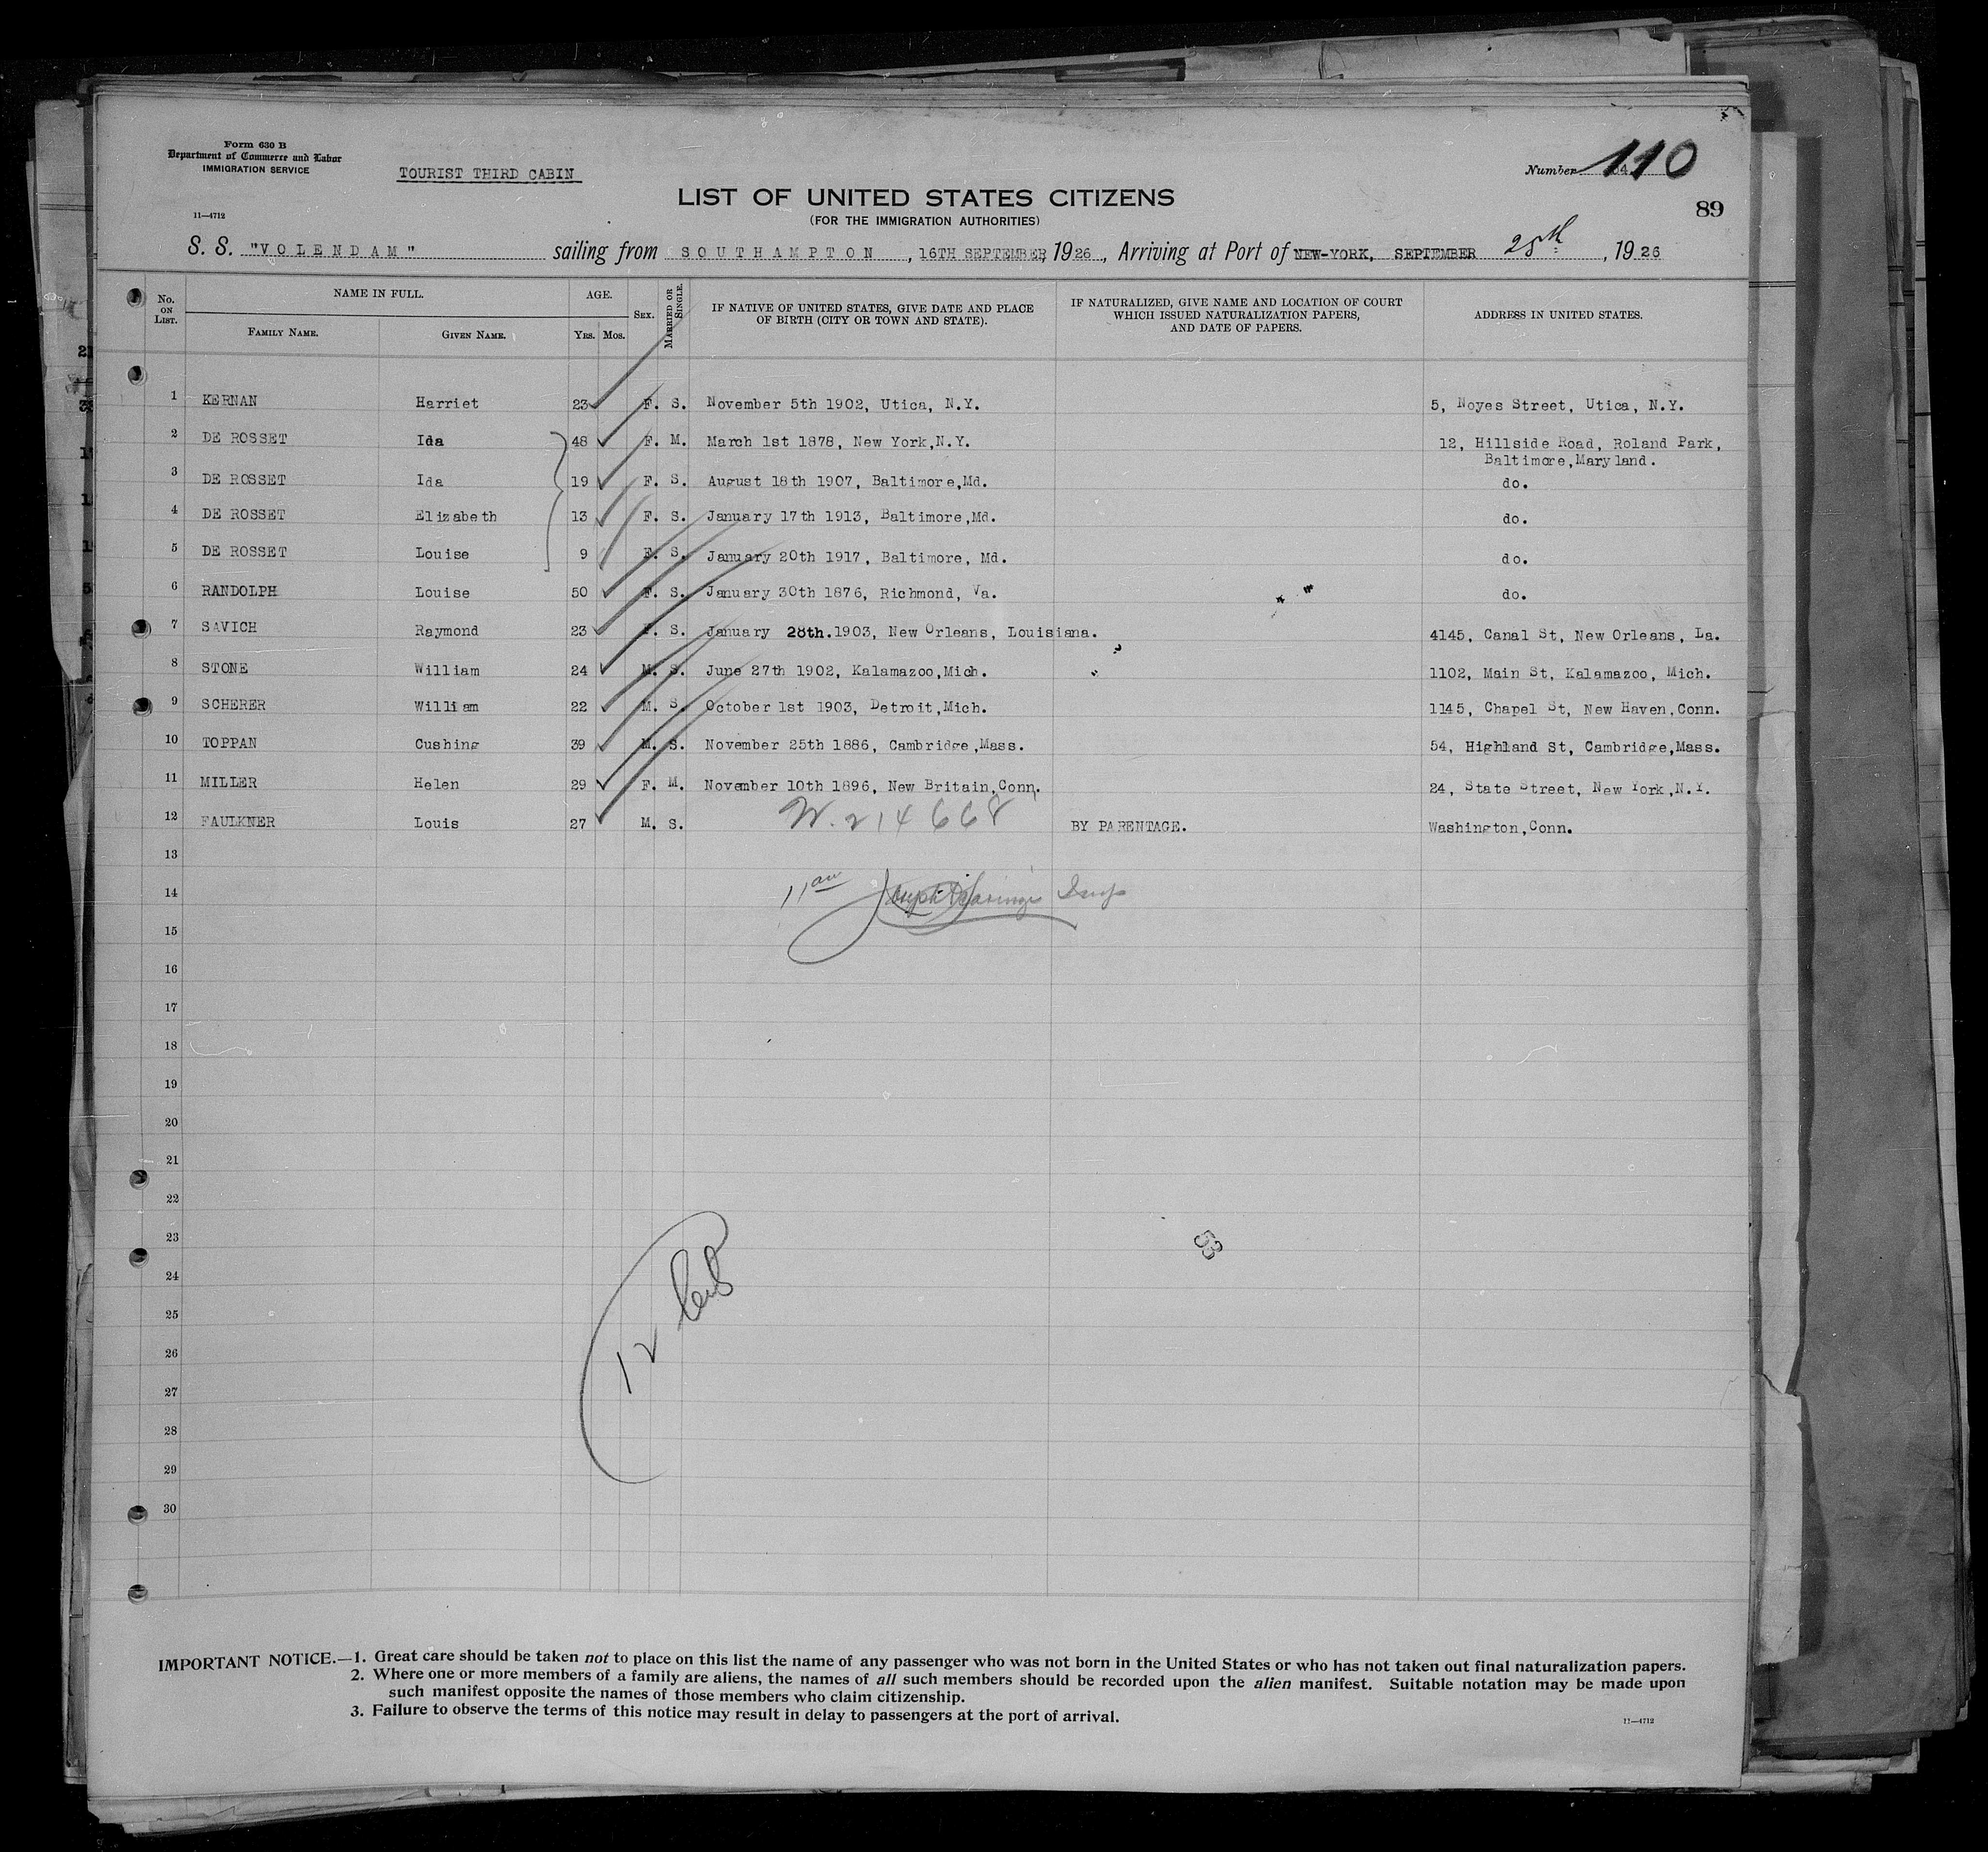 Form 630 B
Department of Commerce and Labor
IMMIGRATION SERVICE
TOURIST THIRD CABIN
Number 110
LIST OF UNITED STATES CITIZENS
(FOR THE IMMIGRATION AUTHORITIES)
89
11—4712
S. S. "VOLENDAM" sailing from SOUTHAMPTON, 16TH SEPTEMBER, 1926, Arriving at Port of NEW-YORK, SEPTEMBER 25th, 1926
No. ON LIST. NAME IN FULL. FAMILY NAME. GIVEN NAME. AGE. YRS. MOS. SEX. MARRIED OR SINGLE. IF NATIVE OF UNITED STATES, GIVE DATE AND PLACE OF BIRTH (CITY OR TOWN AND STATE). IF NATURALIZED, GIVE NAME AND LOCATION OF COURT WHICH ISSUED NATURALIZATION PAPERS, AND DATE OF PAPERS. ADDRESS IN UNITED STATES.
1 KERNAN Harriet 23 F. S. November 5th 1902, Utica, N.Y. 5, Noyes Street, Utica, N.Y.
2 DE ROSSET Ida 48 F. M. March 1st 1878, New York,N.Y. 12, Hillside Road, Roland Park,
Baltimore,Maryland.
3 DE ROSSET Ida 19 F. S. August 18th 1907, Baltimore,Md. do.
4 DE ROSSET Elizabeth 13 F. S. January 17th 1913, Baltimore,Md. do.
5 DE ROSSET Louise 9 F. S. January 20th 1917, Baltimore, Md. do.
6 RANDOLPH Louise 50 F. S. January 30th 1876, Richmond, Va. do.
7 SAVICH Raymond 23 S. January 28th.1903, New Orleans, Louisiana. 4145, Canal St, New Orleans, La.
8 STONE William 24 M. S. June 27th 1902, Kalamazoo,Mich. 1102, Main St, Kalamazoo, Mich.
9 SCHERER William 22 M. S. October 1st 1903, Detroit,Mich. 1145, Chapel St, New Haven,Conn.
10 TOPPAN Cushing 39 M. S. November 25th 1886, Cambridge,Mass. 54, Highland St, Cambridge,Mass.
11 MILLER Helen 29 F. M. November 10th 1896, New Britain,Conn. 24, State Street, New York,N.Y.
12 FAULKNER Louis 27 M. S. 214668 BY PARENTAGE. Washington,Conn.
13
14
15
16
17
18
19
20
21
22
23
53
24
25
12
26
27
28
29
30
IMPORTANT NOTICE.—1. Great care should be taken not to place on this list the name of any passenger who was not born in the United States or who has not taken out final naturalization papers.
2. Where one or more members of a family are aliens, the names of all such members should be recorded upon the alien manifest. Suitable notation may be made upon
such manifest opposite the names of those members who claim citizenship.
3. Failure to observe the terms of this notice may result in delay to passengers at the port of arrival.
11—4712